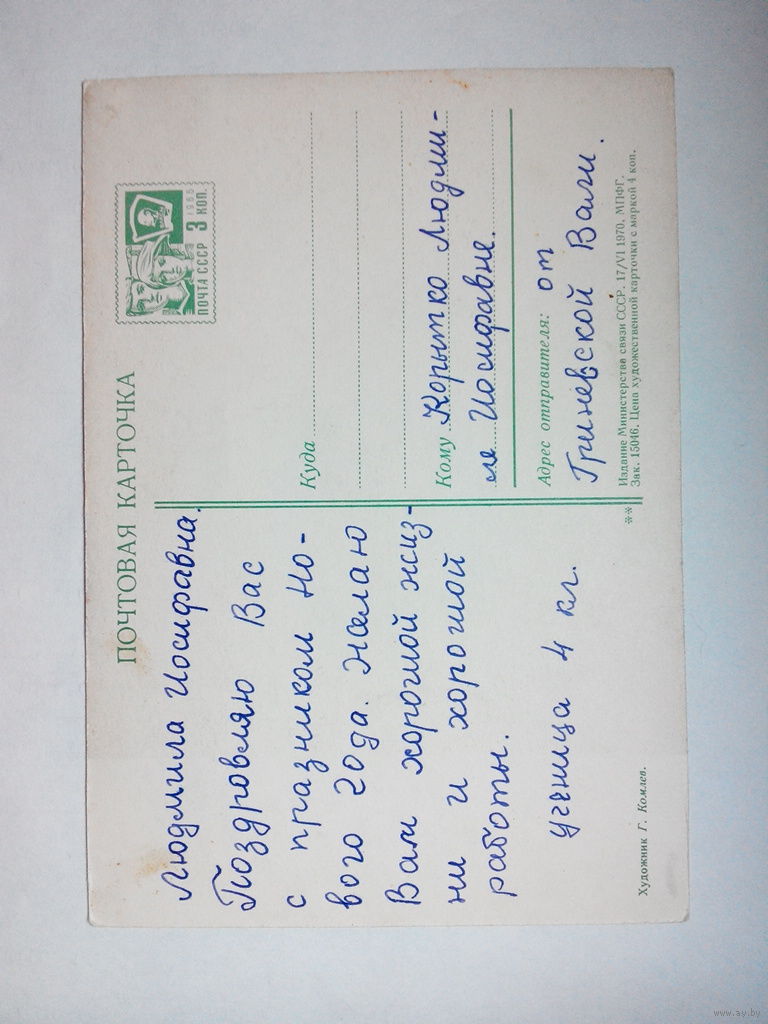 ПОЧТОВАЯ КАРТОЧКА
Людмила Иосифавна.
Поздровляю Вас
с празником Но-
вого года. Желаю
Вам хорошой жиз-
ни и хорошой
работы.
ученица 4 кл.
Художник Г. Комлев.
ПОЧТА СССР 3 КОП.
1966
Куда
Кому Корытко Людми-
ле Иосифавне.
Адрес отправителя: от
Гриневской Вали.
Издание Министерства связи СССР. 17/VI 1970. МПФГ.
Зак. 15046. Цена художественной карточки с маркой 4 коп.
**
www.ay.by